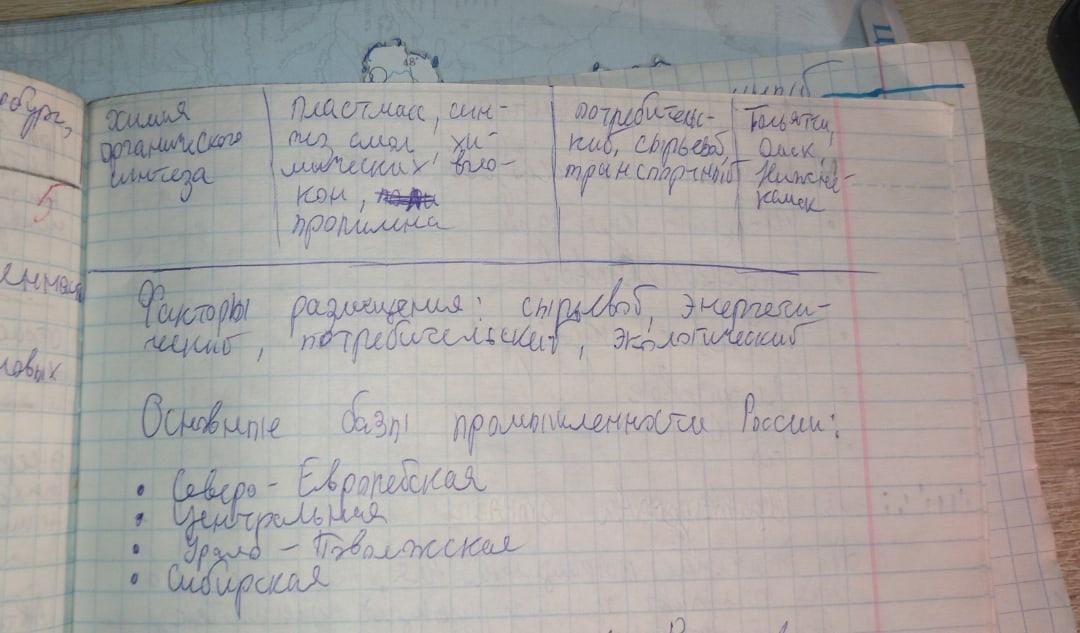 химия
органического
синтеза
пластмасс, син-
тез смол хи-
мических воло-
кон,
пропилена
потребительс-
кий, сырьевой,
транспортный
Тольятти,
Омск,
Нижне-
камск
Факторы размещения: сырьевой, энергети-
ческий, потребительский, экологический
Основные базы промышленности России:
• Северо-Европейская
• Центральная
• Урало-Поволжская
• Сибирская
5
48°